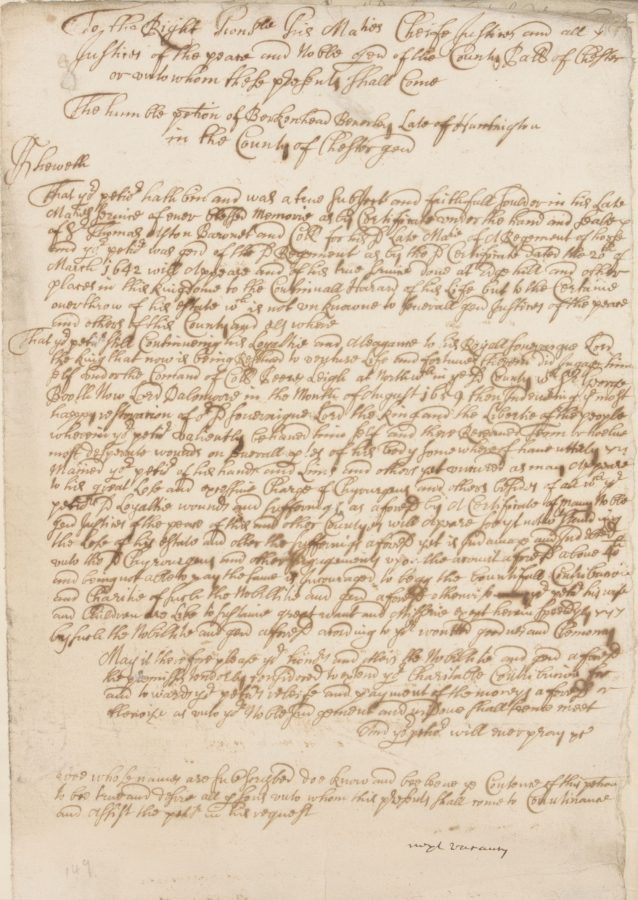 To the Right honble his Maties Cheife Justices and all
Justices of the peace and Noble gen of the County Pall of Chester
or unto whom these psents shall Come
The humble petion of Berkenhead Beverley Late of Huntington
in the County of Chester gen
Sheweth
That yr petir hath bin and was a true Subject and faithfull souldr in his Late
Maties Service of ever blessed Memorie as by Certificate under the hand and seale
of Sr Thomas Aston Baronet and Coll for his sd Late Matie of A Regement of horse
and yr petir was of the sd Regement as by the sd Certificate dated the 20th of
March 1642 will Apeare and of his true service done at Edgehill and other
places in this Kingdome to the Continuall Hazard of his Life but the Certaine
overthrow of his estate wch is not unknowne to severall gen Justices of the peace
and others of this County and els where
That yr petir still Continueing his Loyaltie and Aleagance to his Royall soveraigne Lord
the King that now is being Resolved to venture Life and fortunes therein did ingage him
self under the Comand of Coll Leigh at Northwich in ye sd County wth Sr George
Booth Now Lord Dalamoore in the Month of August 1659 then Indevering ye most
happy restoration of ye sd soveraigne Lord the King and the Libertie of the people
wherein yr petir valiently behaved him self and there Receaved Tenn or twelve
most desperate wounds on severall ptes of his body some where of have utterly
Maimed yr petir of his hands and Lims and others yet uncured as may Apeare
to his great Losse and excessive Charge of Chyrurgens and others besides of all wch yr
petirs sd Loyaltie wounds and sufferings as aforesd by A Certificate of many Noble
gen Justices of the peace of this and other Countyes will Apeare
the losse of his estate and other the sufferings aforesd yet is and Indebted
unto the sd Chyrurgens and other Ingagements upon the acount aforesd above
and being not able to pay the same is Incouraged to begg the bountifull Contributions
and Charitie of such the Nobilitie and gen aforesd otherwise yr petir his wife
and Children are Like to susteine great want and Miserie except herein speedyly
by such the Nobilitie and gen aforesd acording to yr wonted goodnes and Clemency
May it therefore please yr honrs and others the Nobilitie and gen aforesd
the premisses tenderly Considered to extend yr Charitable Contributions for
and towards yr petirs releife and payment of the moneys aforesd or
otherwise as unto yr Noble Judgement and wisdome shall seeme meet
And yr petir will ever pray &c
wee whose names are subscribed doe know and beeleeve ye Contents of this petion
to bee true and desire all psons unto whom this psents shall come to Countinance
and Assist the petir in his request
149